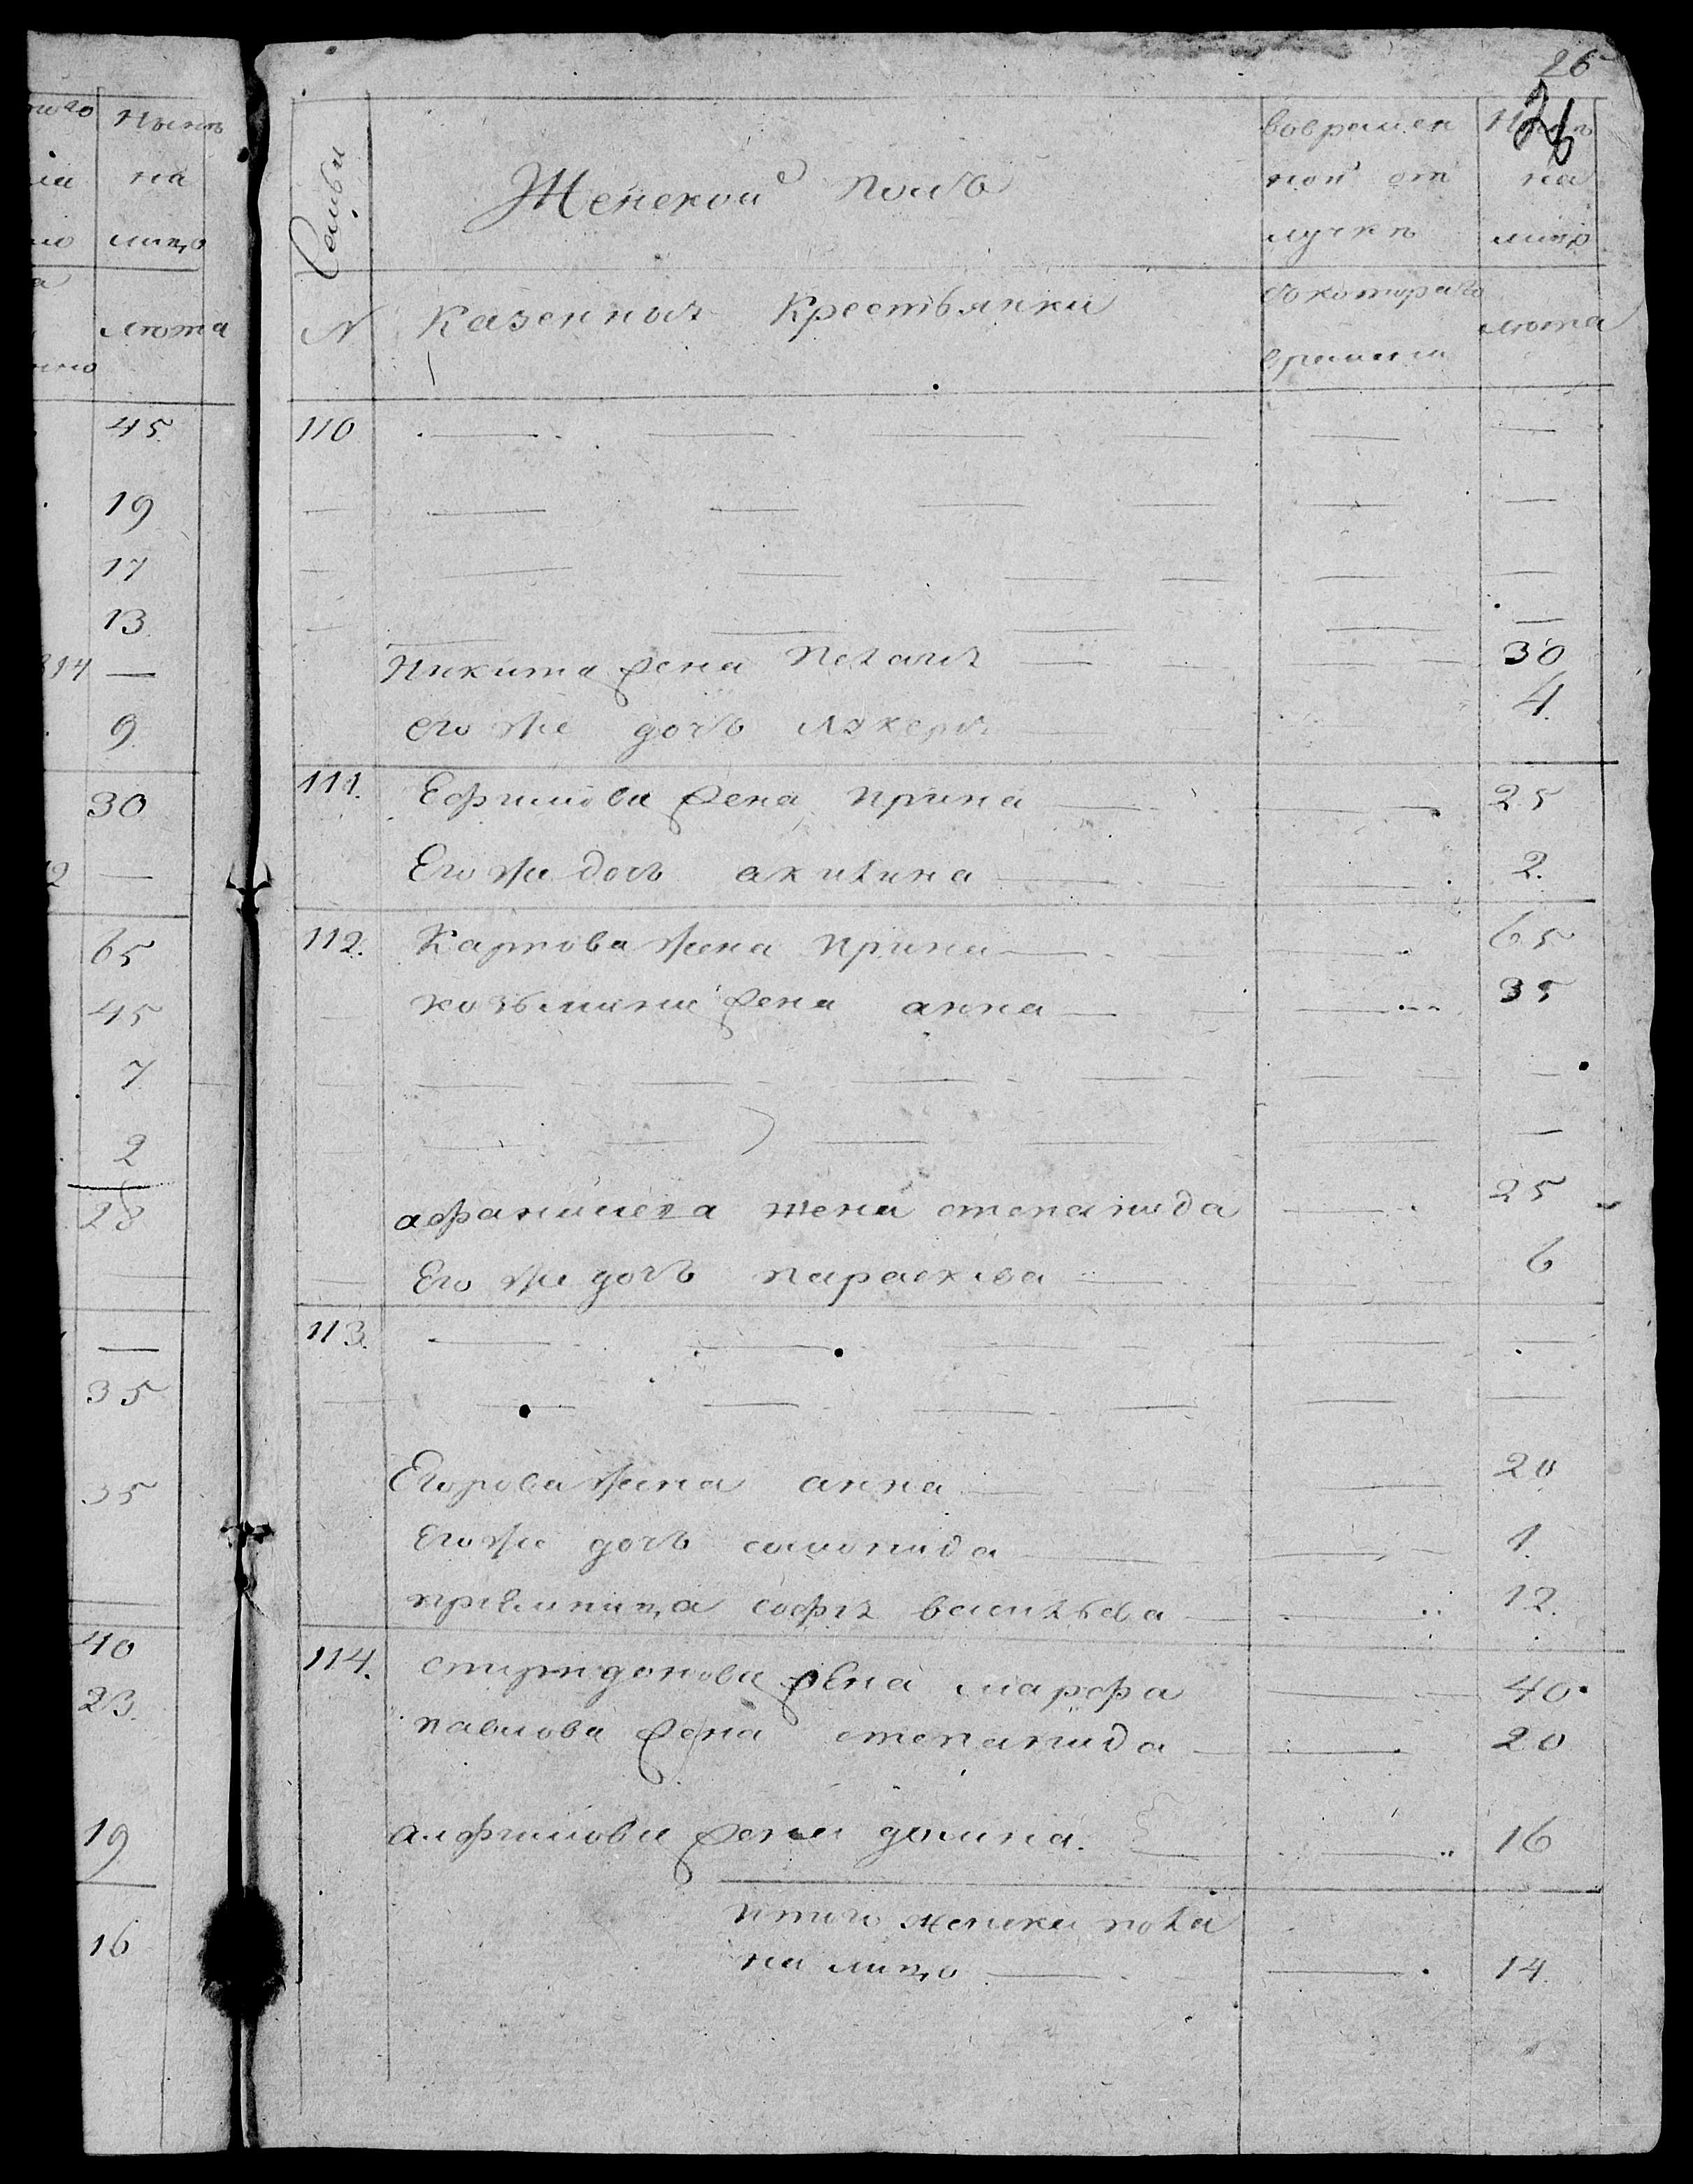 26
26
Семьи
Женской полъ
вовремен
ной от
лучкѣ
Нынѣ
на
лицо
N
Казенныя Крестьянки
съ котораго
времени
лѣта
110
Никита жена Пелагия 30
его же дочь 4.
111. Ефимова жена Ирина 25
Его же дочь акилина 2.
112. Карпова жена Ирина 65
козьмина жена анна 35
афанасьева жена степанида 25
Его же дочь параскева 6
113.
Егорова жена анна 20
Его же дочь соломида 1.
приемница софья васильева 12.
114. спиридонова жена марфа 40
павлова жена степанида 20
алфимова жена домна 16
Итого женска пола
на лицо 14.
Нынѣ
на
лицо
лѣта
45
19
17
13
814 —
9
30
—
65
45
7
2
28
—
35
35
40
23.
19
16